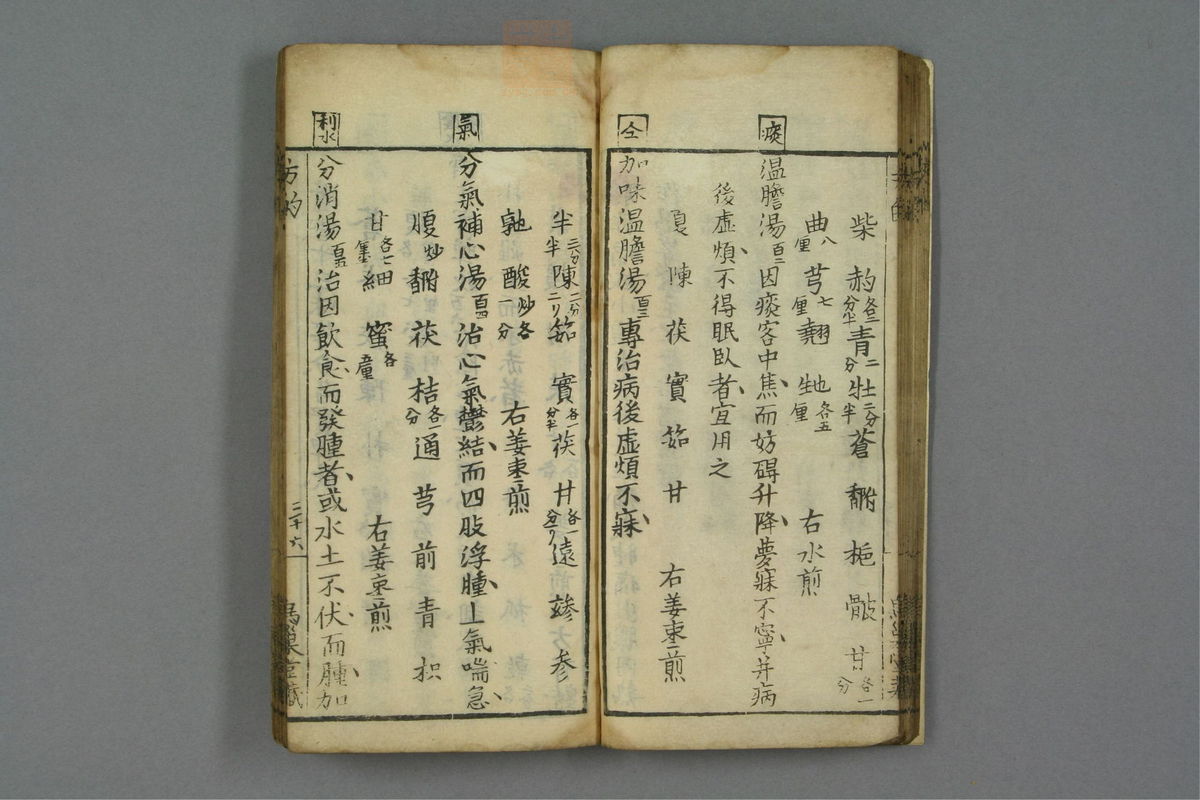 柴 芍各二分半 青二分 牡二分半 蒼 梔 甘各一分
曲八厘 芎七厘 翹 各五厘 右水煎
痰 温膽湯百二 因痰客中焦而妨碍升降夢寐不寧并病
後虛煩不得眠臥者宜用之
夏 陳 茯 實 筎 甘 右姜棗煎
仝 加味温膽湯百三 專治病後虛煩不寐
半三分半 陳二分二リ 筎 實各一分半 茯 甘各一分一リ 遠 参
酸炒各一分 右姜棗煎
氣 分氣補心湯百四 治心氣鬱結而四肢浮腫上氣喘急
腹炒 茯 桔各一分 通 芎 前 青 枳
甘各七厘 細 蜜各 右姜棗煎
利水 分消湯百五 治因飲食而發腫者或水土不伏而腫加
方的 三十六